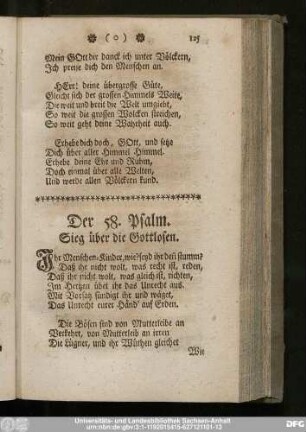 ( o ) 125
Mein GOtt der danck ich unter Völckern,
Ich preise dich den Menschen an.
HErr! deine übergrosse Güte,
Gleicht sich der grossen Himmels Weite,
Die weit und breit die Welt umgiebt,
So weit die grossen Wolcken streichen,
So weit geht deine Wahrheit auch.
Erhebe dich doch, GOtt, und setze
Dich über aller Himmel Himmel.
Erhebe deine Ehr und Ruhm,
Doch einmal über alle Welten,
Und werde allen Völckern kund.
Der 58. Psalm.
Sieg über die Gottlosen.
Ihr Menschen-Kinder, wie? seyd ihr deñ stumm?
Daß ihr nicht wolt, was recht ist, reden,
Daß ihr nicht wolt, was gleich ist, richten,
Im Hertzen übet ihr das Unrecht aus.
Mit Vorsatz sündigt ihr und wäget,
Das Unrecht eurer Händ' auf Erden.
Die Bösen sind von Mutterleibe an
Verkehrt, von Mutterleib an irren
Die Lügner, und ihr Wüthen gleichet
Wie
Universitäts- und Landesbibliothek Sachsen-Anhalt
urn:nbn:de:gbv:3:1-1192015415-627121101-13
DFG